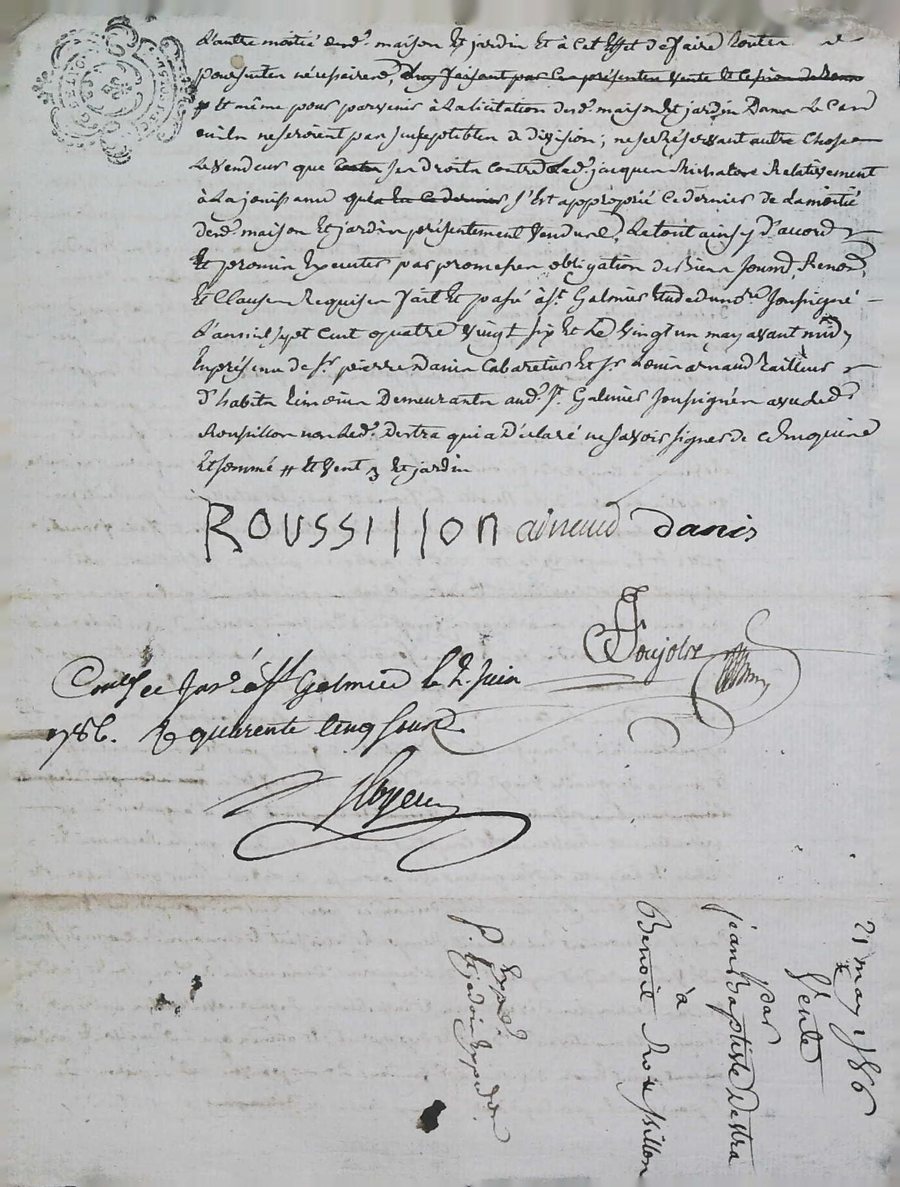 d'autre moitié desd. maison Et jardin Et à cet Effet de faire toutes
poursuites nécessaires, Luy faisant par ces présentes vente Et cession de
# Et même pour parvenir à La licitation desd. maison Et jardin Dans Le Cas
ou ils ne seroient pas susceptibles de division; ne se Réservant autre Chose
Le Vendeur que ses droits contre Led. jacques Relativement
à La jouissance que ce dernier s'Est approprié ce dernier de La moitié
desd. maison Et jardin présentement Vendues, Le tout ainsy d'accord
Et promis Executer par promesses obligation de Biens Soumd. Renond.
Et Clauses Requises fait Et passé à St. Galmier Etude du nore. soussigné
L'an mil sept cent quatre vingt six Et Le vingt un may avant midy
En présence de sr. pierre Danis Cabaretier Et sr. Louis arnaud tailleur
d'habits témoins Demeurants aud. St. Galmier soussignés avec led.
Roussillon non Led. Destra qui a Déclaré ne savoir signer de ce Enquis
Et sommé # Et vente 3 Et jardin
ROUSSILLON arnaud danis
Ponjolre
Conlé et Insé. à St. Galmier le 2. Juin
1786. R quarente Cinq sous
21 may 1786
Vente
par
jean Baptiste Destra
à
Benoit Roussillon
Expd.